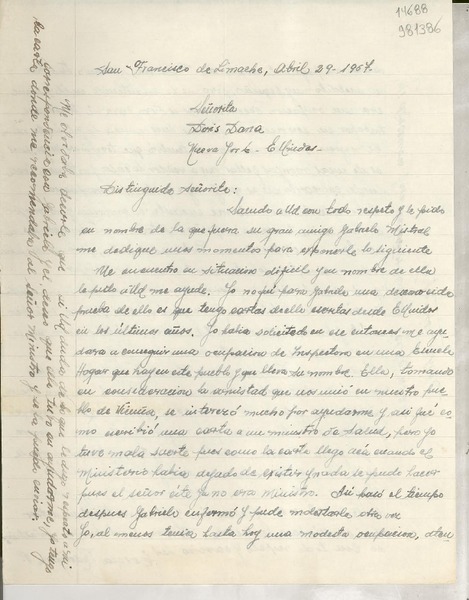 14688
981386
San Francisco de Limache, Abril 29-1957.
Señorita
Doris Dana
Nueva York - EUnidos
Distinguida Señorita:
Saludo a Ud con todo respeto y le pido
en nombre de la que fuera su gran amiga Gabriela Mistral
me dedique unos momentos para exponerle lo siguiente
Me encuentro en situación difícil y en nombre de ella
le pido a Ud me ayude. Yo no fuí para Gabriela una desconocida
prueba de ello es que tengo cartas de ella escritas desde EUnidos
en los últimos años. Yo había solicitado en ese entonces me ayu
dara a conseguir una ocupación de Inspectora en una Escuela
Hogar que hay en este pueblo y que lleva su nombre. Ella, tomando
en consideración la amistad que nos unió en nuestro pue
blo de Vicuña, se interesó mucho por ayudarme y así fué co
mo escribió una carta a un ministro de Salud, pero yo
tuve mala suerte pues como la carta llegó acá cuando el
Ministerio había dejado de existir y nada se pudo hacer
pues el señor éste ya no era ministro. Así pasó el tiempo
despues Gabriela enfermó y pude molestarla otra vez
Yo, al menos tenía hasta hoy una modesta ocupación, aten
Me olvidaba decirle que si Ud duda de lo que le digo respecto a mi
correspondencia con Gabriela y el deseo que ella tuvo en ayudarme, yo tengo
la carta donde me recomendaba al señor Ministro y se la puedo enviar.